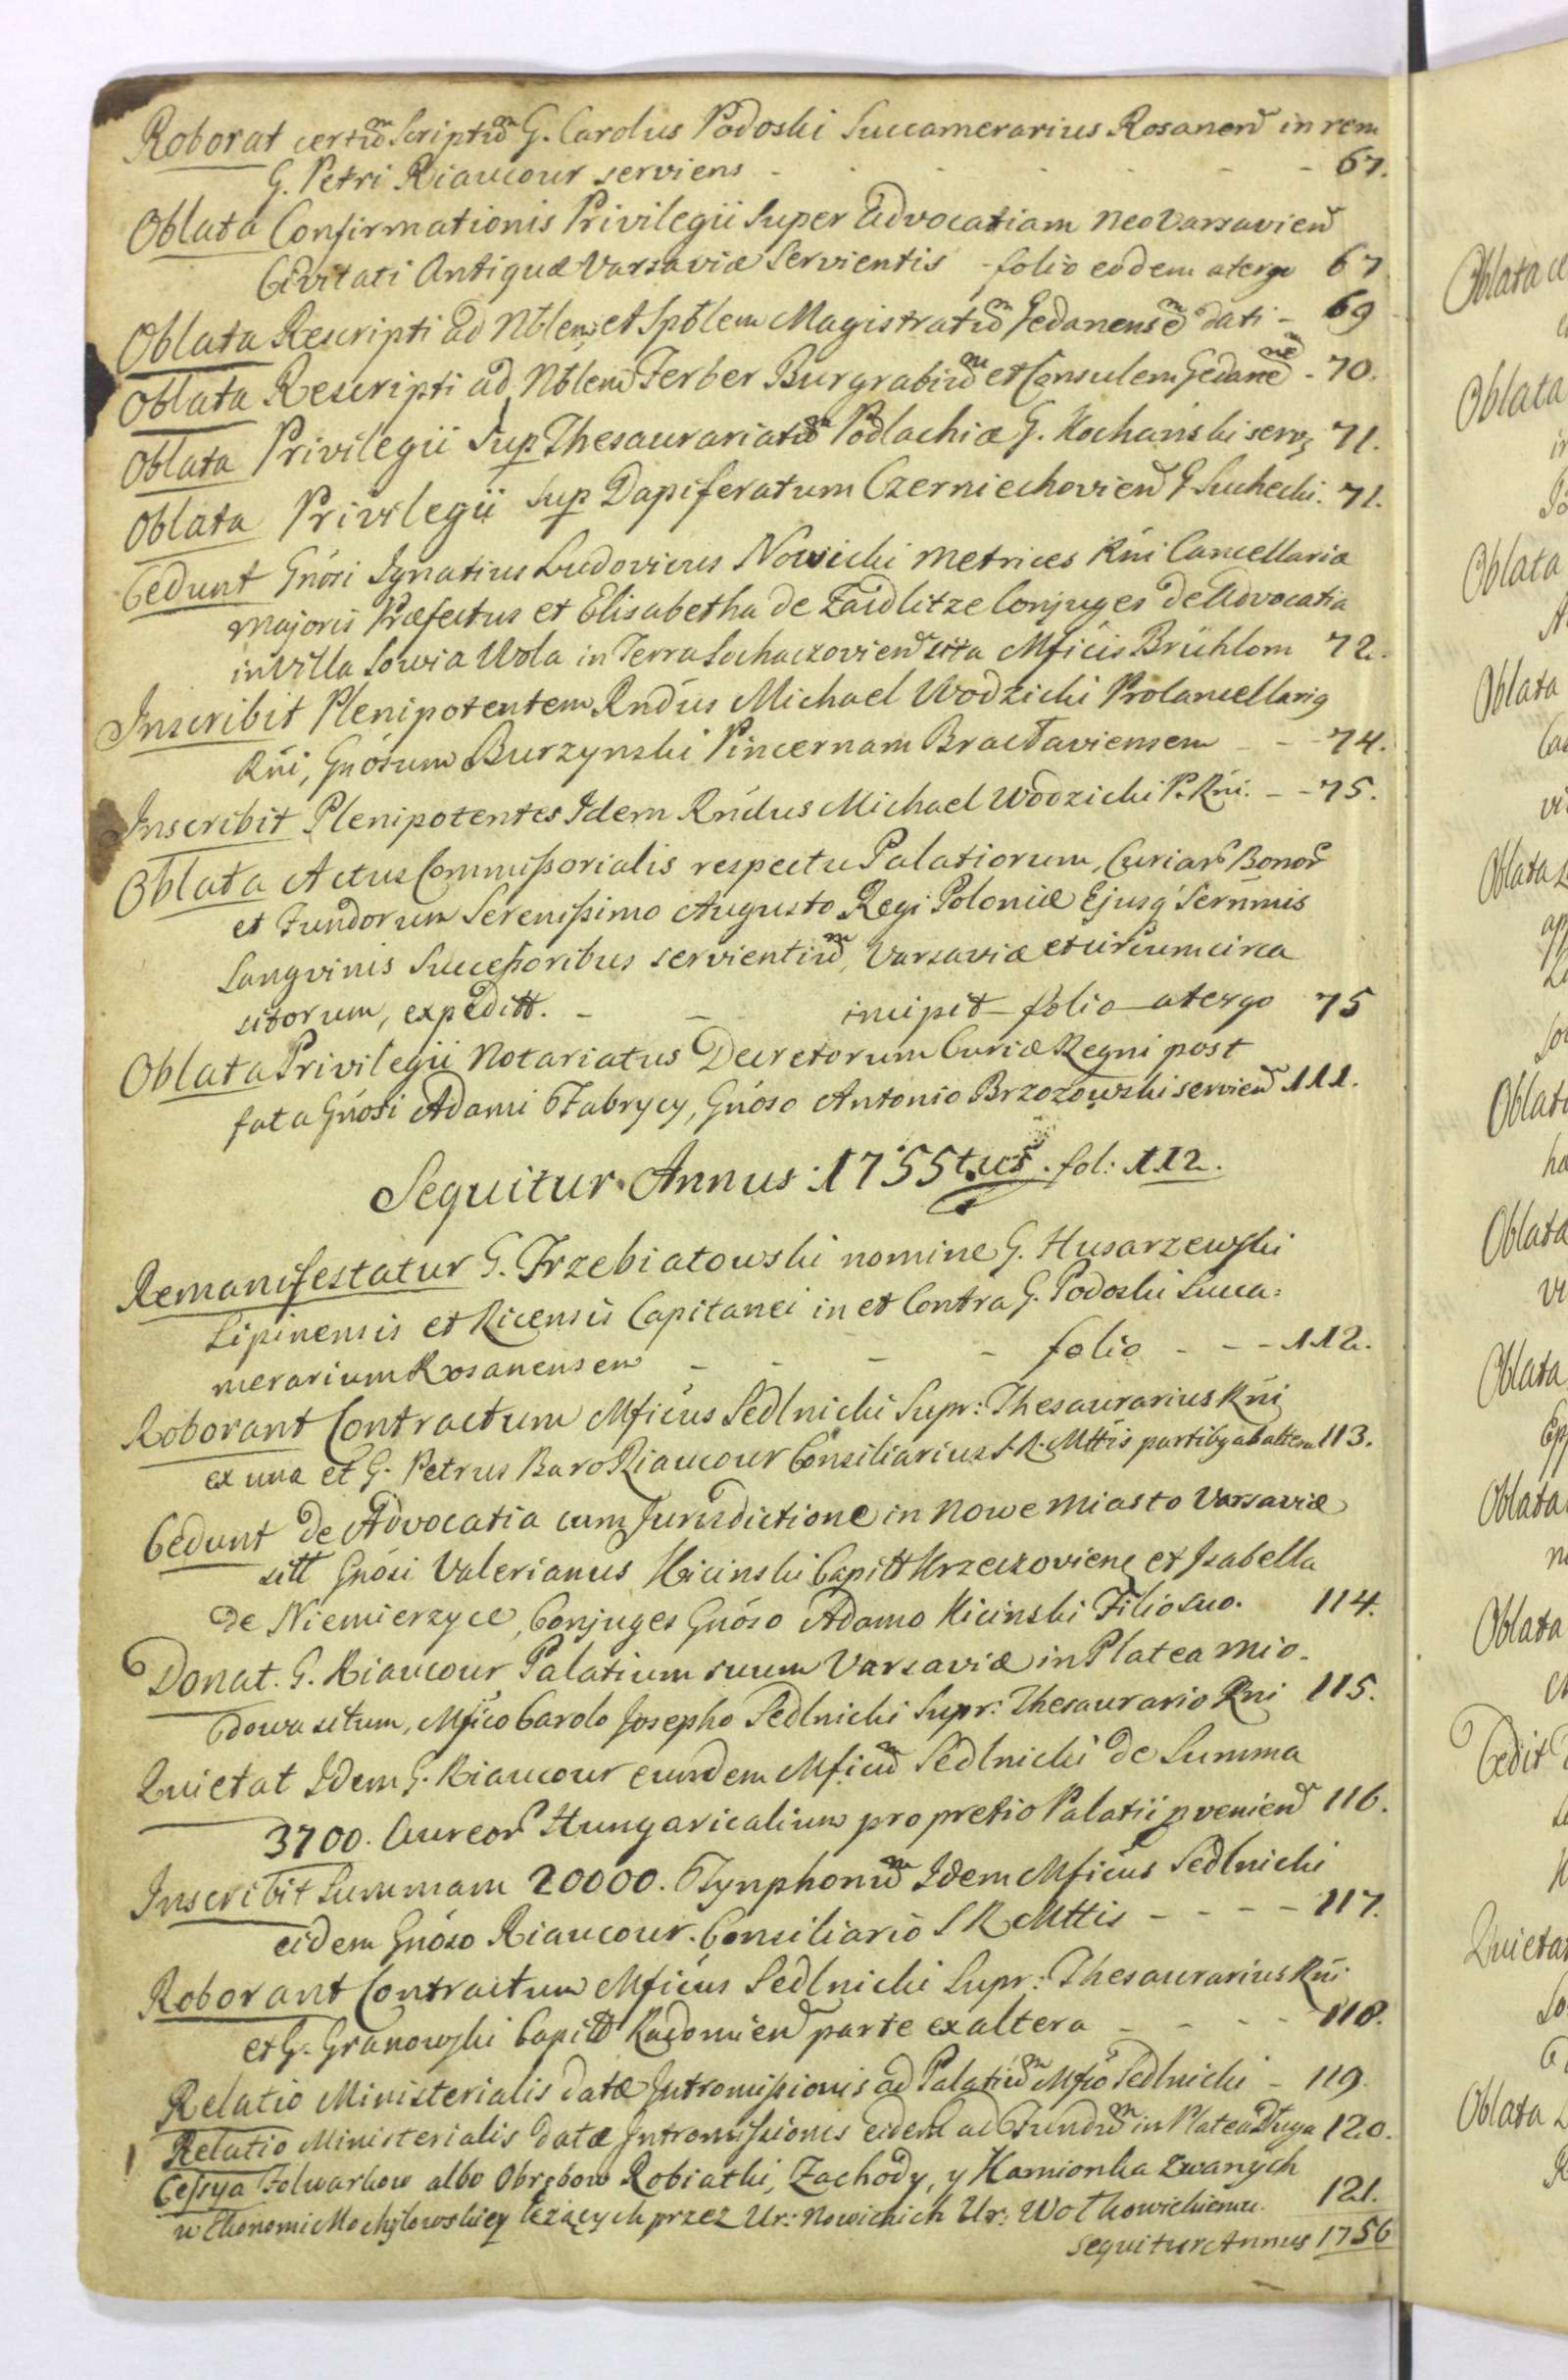 Roborat certũm Scriptũm G. Carolus Podoski Succamerarius Rosanen in rem
G. Petri Riaucour serviens - - - - 67.
Oblata Confirmationis Privilegii Super Advocatiam neo Varsavien
Civitati Antiquæ Varsaviæ Servientis - folio eodem atergo 67
Oblata Rescripti ad Nblem et Spblem Magistratũm Gedanensẽm dati - 69
Oblata Rescripti ad Nblem Ferber Burgrabiũm et Consulem Gedanẽ - 70.
Oblata Privilegii Sup Thesaurariatũm Podlachiæ G. Kochański serv 71.
Oblata Privilegii Sup Dapiferatum Czerniechovien G Suchecki. 71.
Cedunt Gnósi Ignatius Ludovicus Nowicki Metrices Rńi Cancellariæ
Majoris Præfectus et Elisabetha de Zaidlitze Conjuges de Advocatia
in Villa Sowia Wola in Terra Sochaczovien sita Mficis Brühlom 72.
Inscribit Plenipotentem Rndus Michael Wodzicki Procancellari9
Rńi, Gnósum Burzynski Pincernam Bracłaviensem - - 74.
Inscribit Plenipotentes Idem Rńdus Michael Wodzicki P. Rńi. - - 75.
Oblata Actus Commissorialis respectu Palatiorum, Curiar Bonor
et Fundorum Serenissimo Augusto Regi Poloniæ Ejusq Sernmis
Sangvinis Successoribus servientiũm, Varsaviæ et circumcirca
sitorum, expeditt. - - incipit folio atergo 75
Oblata Privilegii Notariatus Decretorum Curiæ Regni post
fata Gnósi Adami Fabrycy, Gnóso Antonio Brzozowski servien 111.
Sequitur Annus 1755tus. fol: 112.
Remanifestatur G. Trzebiatowski nomine G. Husarzewski
Lipinensis et Ricensis Capitanei in et Contra G. Podoski Succa=
merarium Rosanensem - - - - folio - - - 112.
Roborant Contractum Mficus Sedlnicki Supr: Thesaurarius Rńi
ex una et G. Petrus Baro Riaucour Consiliarius S. R. Mttis partibq ab altera 113.
Cedunt de Advocatia cum Jurisdictione in Nowe Miasto Varsaviæ
sitt Gnósi Valerianus Kicinski Capitt Krzeczoviens et Isabella
de Niemierzyce, Conjuges Gnóso Adamo Kicinski Filio suo. 114.
Donat. G. Riaucour Palatium suum Varsaviæ in Platea Mio-
dowa situm, Mfico Carolo Josepho Sedlnicki Supr: Thesaurario Rni 115.
Quietat Idem G. Riaucour eundem Mficũm Sedlnicki de Summa
3700. Aureor Hungaricalium pro pretio Palatii pvenien 116.
Inscribit Summam 20000. Tynphonũm Idem Mficus Sedlnicki
eidem Gnóso Riaucour. Consiliario S R Mttis - - - - 117.
Roborant Contractum Mficus Sedlnicki Supr: Thesaurarius Rńi
et G. Granowski Capitt Radomien parte ex altera - - - - 118.
Relatio Ministerialis datæ Intromissionis ad Palatiũm Mfco Sedlnicki - 119.
Relatio Ministerialis datæ Intromissionis eidem ad Fundũm in Platea Długa 120.
Cessya Folwarkow albo Obrębow Robiatki, Zachody, y Kamionka Zwanych
w Ekonomii Mochylowskiey leżących przez Ur: Nowickich Ur: Wołkowickiemu. 121.
Sequitur Annus 1756